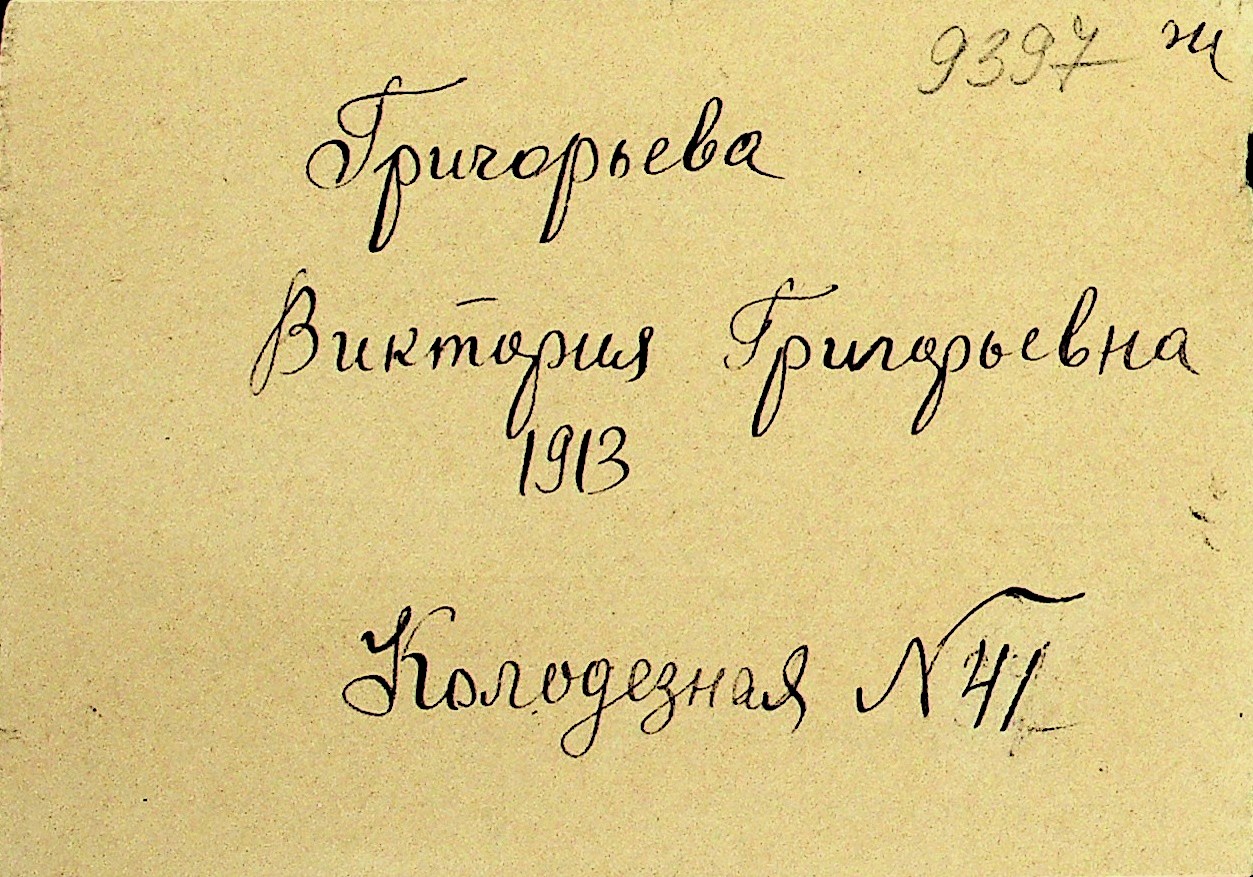 9397 ж
Григорьева
Виктория Григорьевна
1913
Колодезная N 41